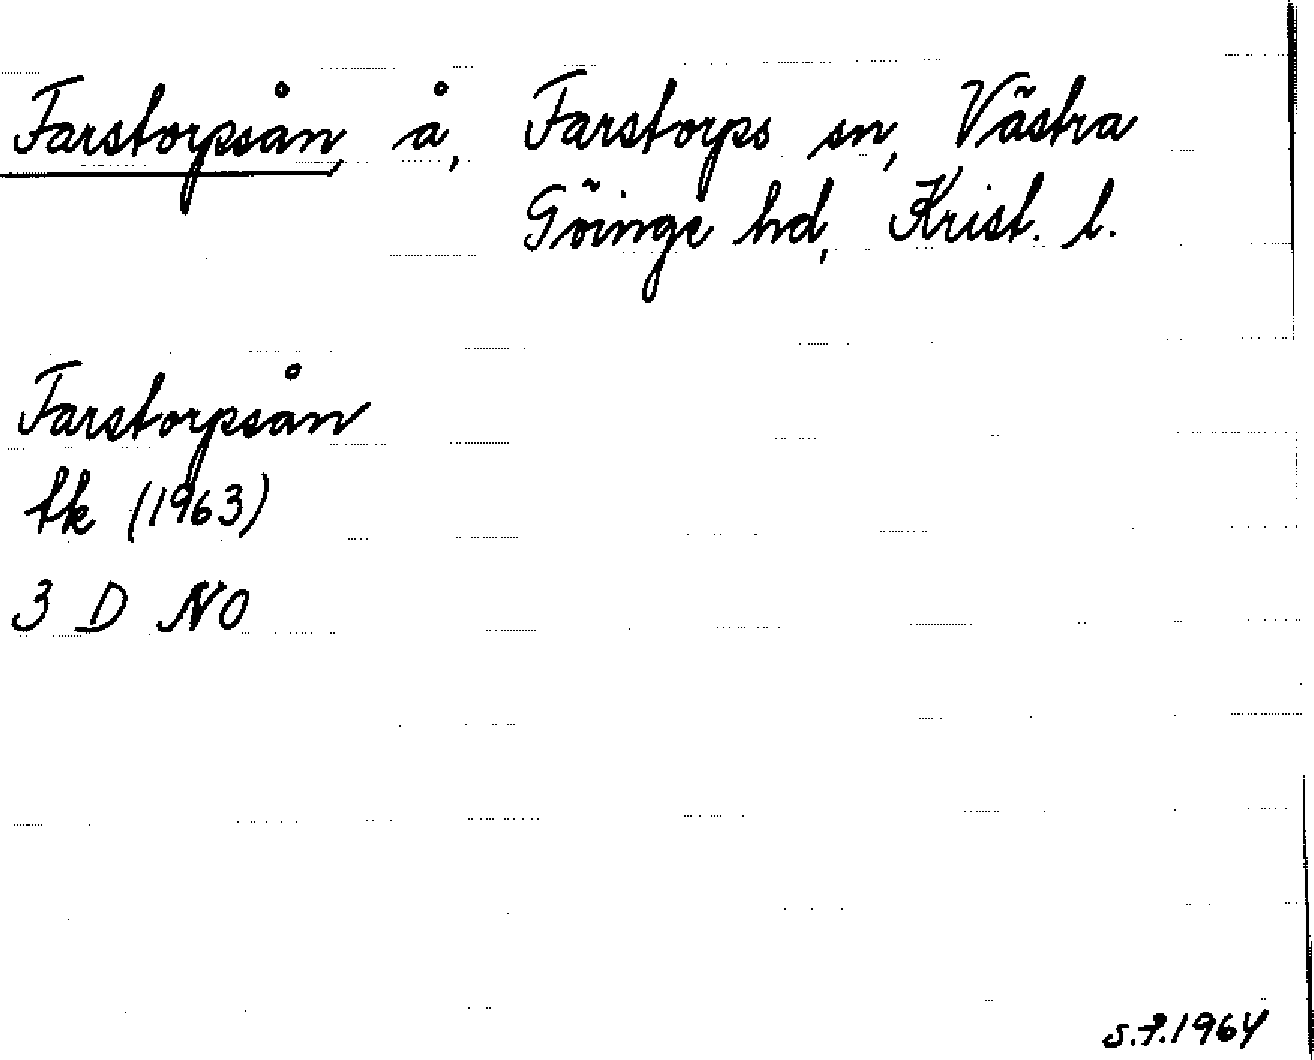 Farstorpsån, å, Farstorps sn, Västra
Göinge hd, Krist. l.
Farstorpsån
tk (1963)
3 D NO
S.Å. 1964